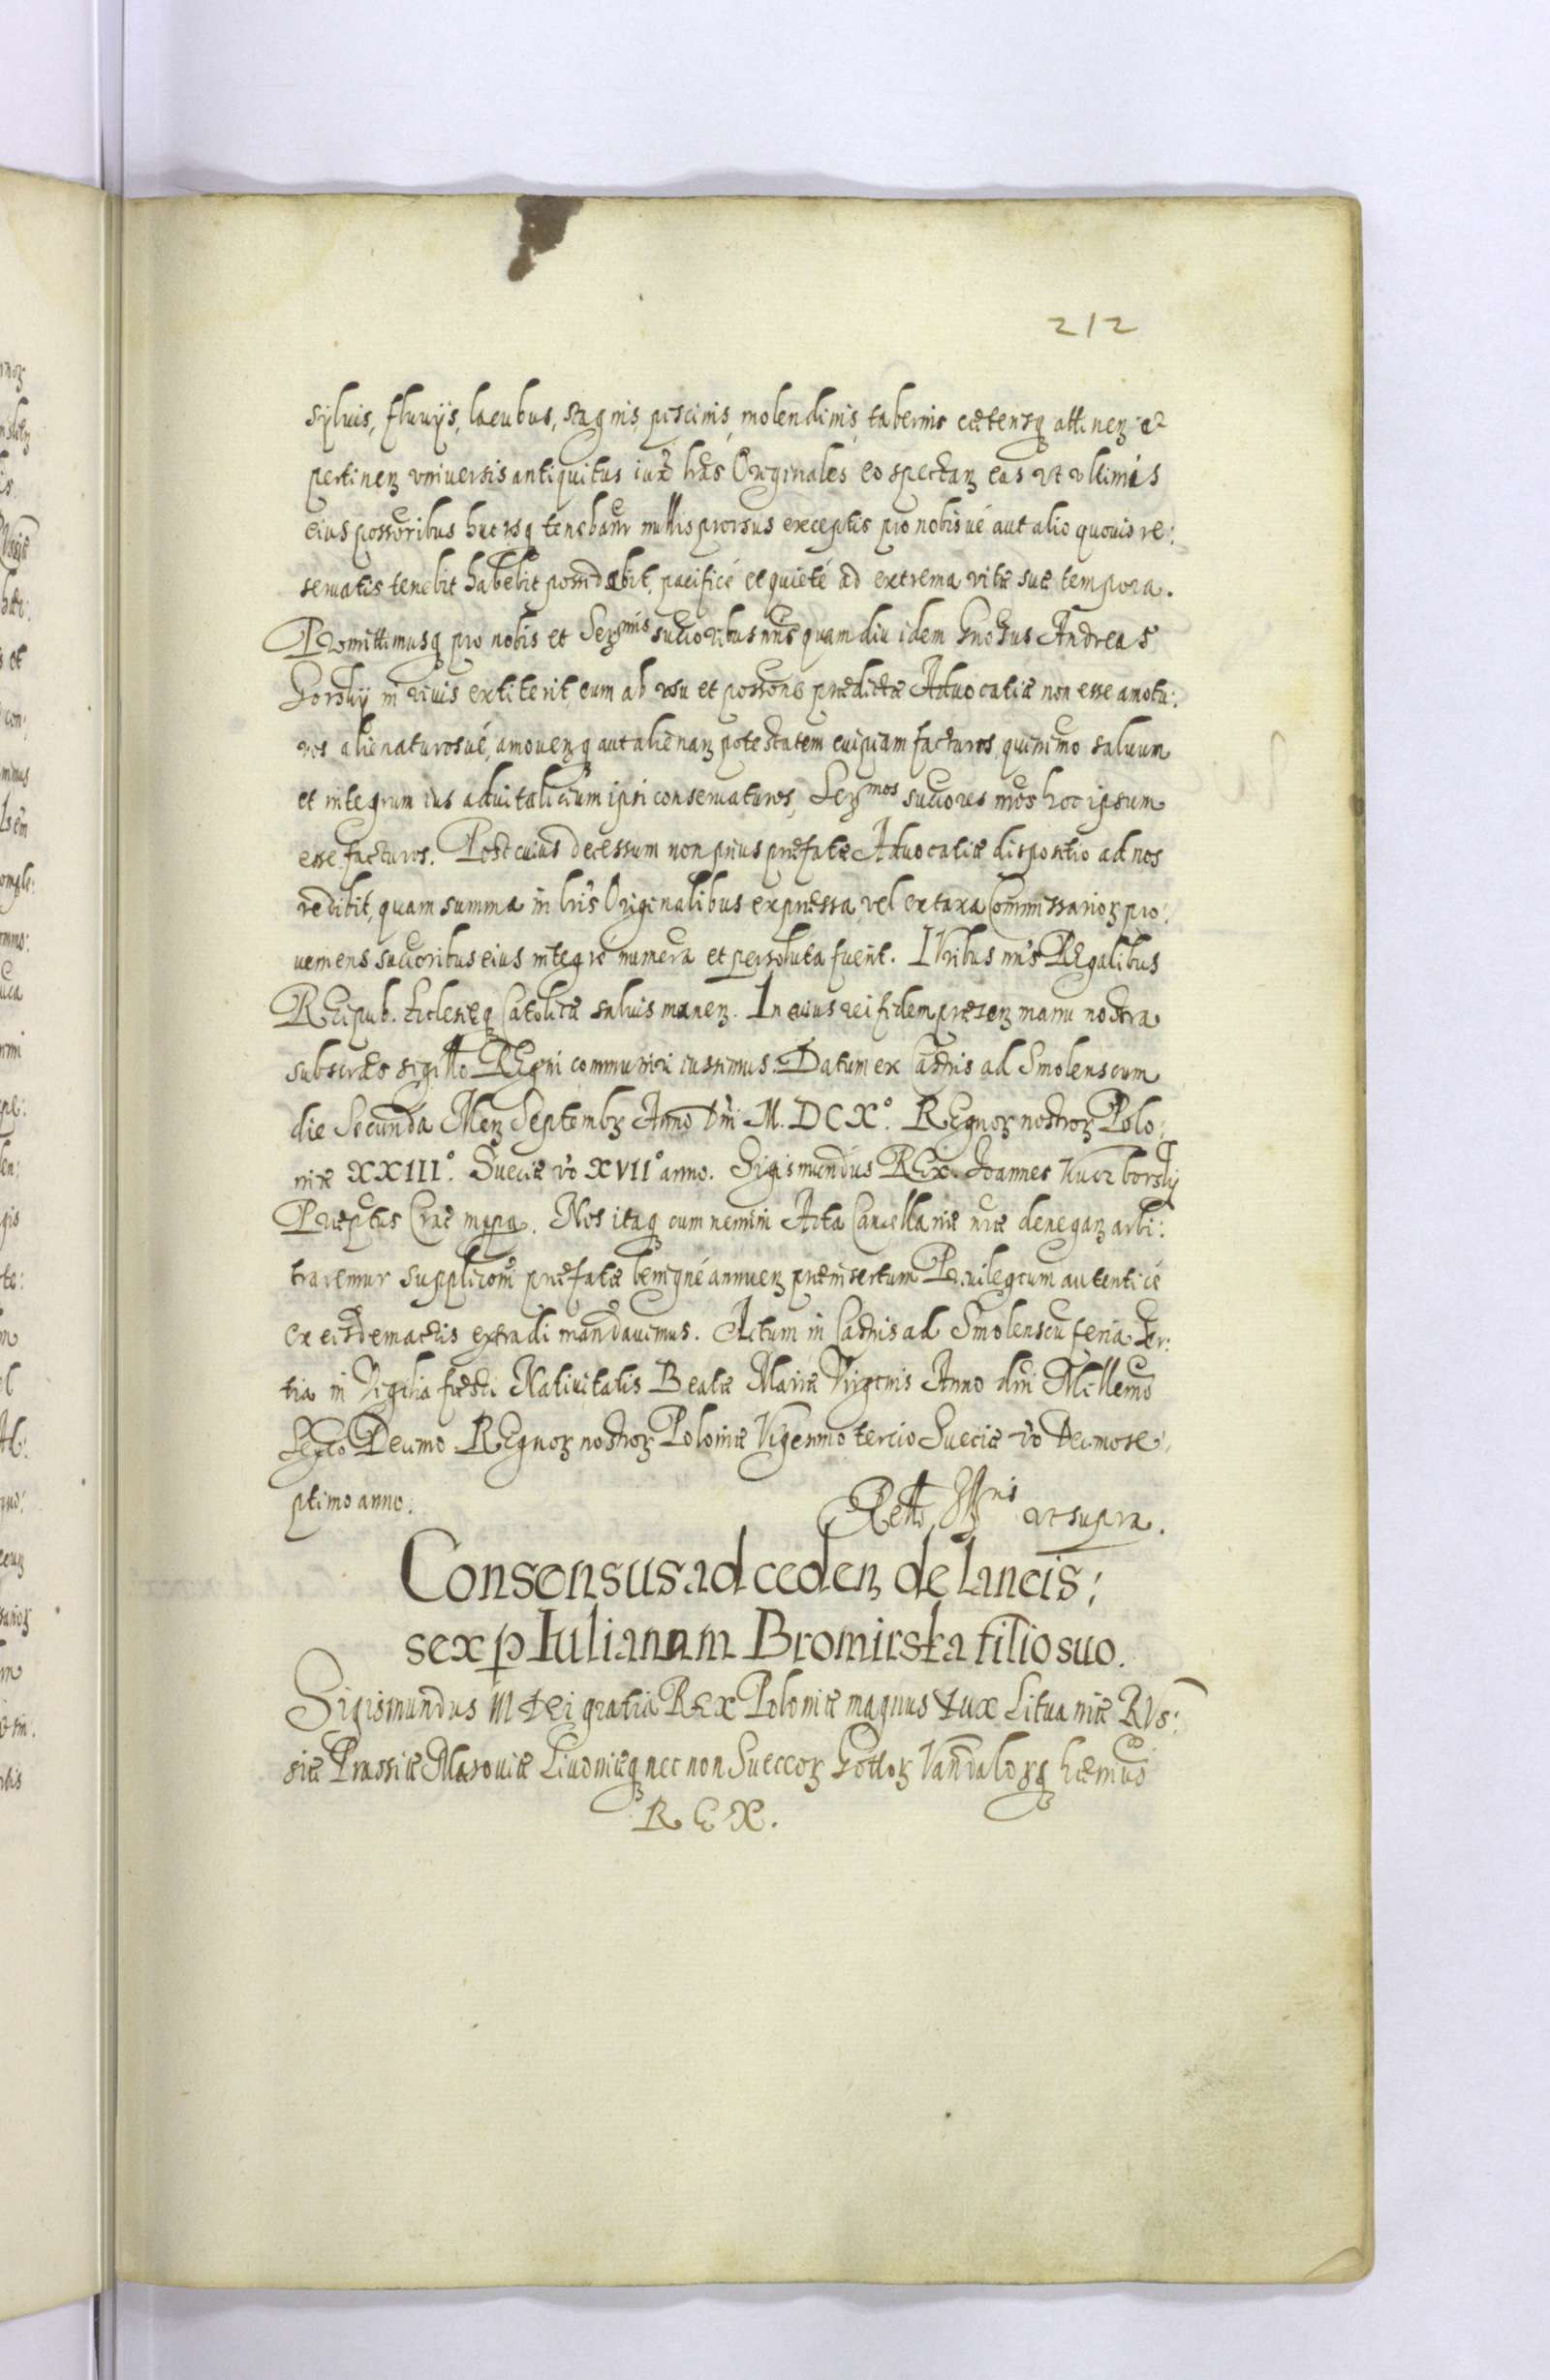 212
sylvis, fluvijs, lacubus, stagnis, piscinis, molendinis, tabernis cæterisq attinen et
pertinen vniversis antiquitus iuxa lras Originales eo spectan eas vt vltimis
eius possoribus hucusq tenebantur nullis prorsus exceptis pro nobisvé aut alio quovis re:
servatis tenebit habebit possidebit, pacificé et quieté ad extrema vitæ suæ tempora.
Promittimusq pro nobis et Sermis succoribus nris quamdiu idem Gnosus Andreas
Gorskij in vivis extiterit, eum ab vsu et possone prædictæ Advocatiæ non esse amotu:
ros alienaturosvé, amovenq aut alienan potestatem cuipiam facturos, quinimo salvum
et integrum ius advitalicium ipsi conservaturos, Sermos succores nros hoc ipsum
esse facturos. Post cuius decessum non prius præfatæ Advocatiæ dispositio ad nos
redibit, quam summa in lris Originalibus expressa, vel ex taxa Commissarior pro:
veniens succoribus eius integré numera et persoluta fuerit. IVribus nris REgalibus
REipub. Ecclesiæq Catolicæ salvis manen. In cuius rei fidem præsen manu nostra
subscras sigillo REgni communiri iussimus. Datum ex Castris ad Smolenscum
die Secunda Men Septembr Anno Dni M. DCX.° REgnor nostror Polo:
niæ XXIII.° Sueciæ vo XVII° anno. Sigismundus REx. Joannes Kuczborskij
Præptus Crac mppa. Nos itaq cum nemini Acta Cancellariæ nræ denegan arbi:
traremur supplicom præfatæ benigné annuen præinsertum Privilegium autenticé
ex eisdem actis extradi mandavimus. Actum in Castris ad Smolenscu feria ter:
tia in Vigilia festi Nativitatis Beatæ Mariæ Virginis Anno dni Millemo
Sexco Decimo REgnor nostror Poloniæ Vigesimo tercio Sueciæ vo Decimose:
ptimo anno.
Retto Illnis vt supra.
Consensus ad ceden de laneis:
sex p Iulianam Bromirska filio suo.
Sigismundus III Dei gratia REx Poloniæ magnus Dux Lituaniæ RVs:
siæ Prussiæ Masoviæ Livoniæq nec non Suecor Gottor Vandalorq hæmus
REX.